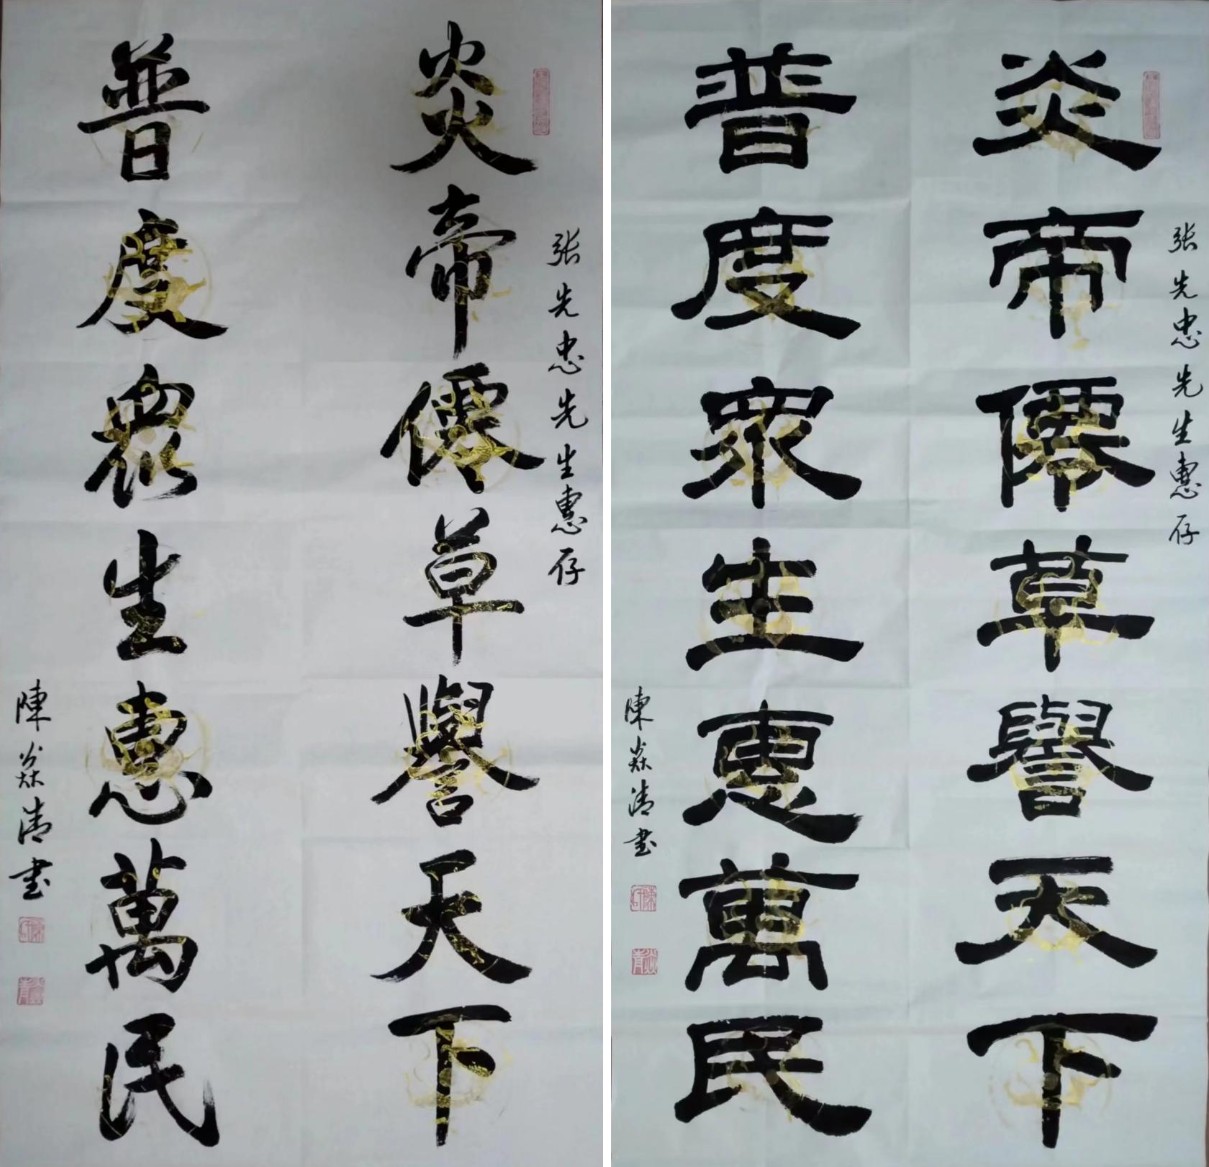 张先忠先生惠存
炎帝僊草譽天下
普度眾生惠萬民
陳焱清書
张先忠先生惠存
炎帝僊草譽天下
普度眾生惠萬民
陳焱清書